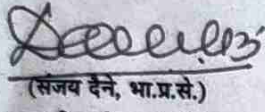 (संजय दैने, भा.प्र.से.)